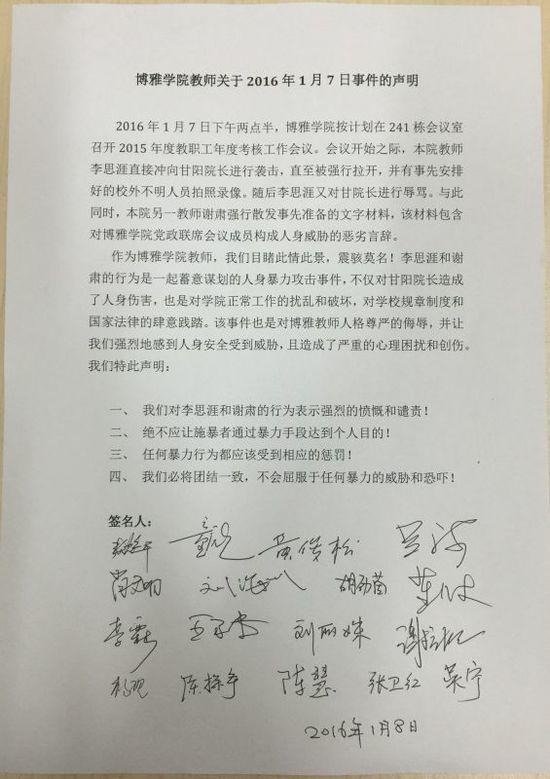 博雅学院教师关于 2016 年 1 月 7 日事件的声明
2016 年 1 月 7 日下午两点半，博雅学院按计划在 241 栋会议室
召开 2015 年度教职工年度考核工作会议。会议开始之际，本院教师
李思涯直接冲向甘阳院长进行袭击，直至被强行拉开，并有事先安排
好的校外不明人员拍照录像。随后李思涯又对甘院长进行辱骂。与此
同时，本院另一教师谢肃强行散发事先准备的文字材料，该材料包含
对博雅学院党政联席会议成员构成人身威胁的恶劣言辞。
作为博雅学院教师，我们目睹此情此景，震骇莫名！李思涯和谢
肃的行为是一起蓄意谋划的人身暴力攻击事件，不仅对甘阳院长造成
了人身伤害，也是对学院正常工作的扰乱和破坏，对学校规章制度和
国家法律的肆意践踏。该事件也是对博雅教师人格尊严的侮辱，并让
我们强烈地感到人身安全受到威胁，且造成了严重的心理困扰和创伤。
我们特此声明：
一、 我们对李思涯和谢肃的行为表示强烈的愤慨和谴责！
二、 绝不应让施暴者通过暴力手段达到个人目的！
三、 任何暴力行为都应该受到相应的惩罚！
四、 我们必将团结一致，不会屈服于任何暴力的威胁和恐吓！
签名人：
黄俊松 吕海
肖文明 刘海川 胡劲茵 董波
李霖 刘丽姝
陈探宇 陈慧 张卫红 吴宁
2016年1月8日